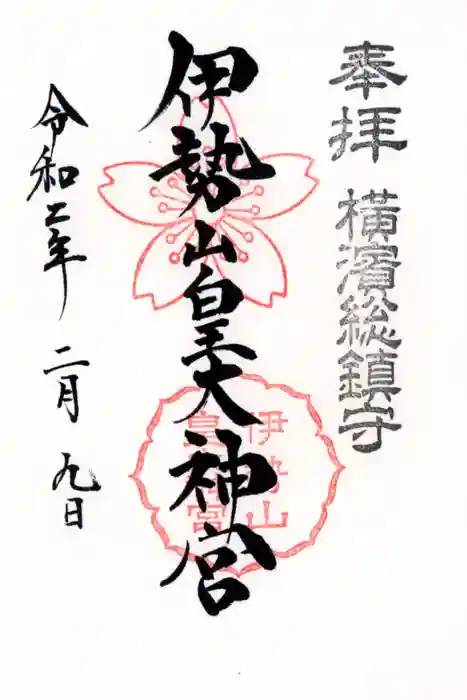 奉拝
横濱総鎮守
伊勢山皇大神宮
伊勢山
皇大神宮
令和二年 二月 九日